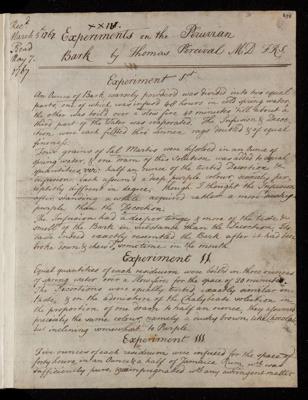 Recd
March 5 1767
Read
May 7.
1767
XXIV.
Experiments on the Peruvian
Bark by Thomas Percival M.D. F.R.S.
Experiment 1st
An Ounce of Bark coarsely powdered was divided into two equal
parts, one of which was infused 48 hours in cold spring water,
the other was boiled over a slow fire, 45 minutes till about a
third part of the Water was evaporated. The Infusion & Decoc-
tion were each filtred thro' linnen rags doubled & of equal
fineness.
Four grains of Sal Martis were dissolved in an Ounce of
spring water, & one dram of this Solution was added to equal
quantities, half an ounce of the Decoction &
Infusion. Each assumed a dark purple colour scarcely per-
ceptibly different in degree, though I thought the Infusion
after standing a while acquired rather a more
purple than the Decoction.
The Infusion had a deeper tinge & more of the taste &
smell of the Bark in Substance than the Decoction,
the Bark after it had been
some time in the mouth
Experiment II
Equal quantities of each residuum were boiled in three ounces
of spring water over a slow fire for the space of 20 minutes.
The Decoctions were equally tinged exactly similar in
taste, & on the admixtion of the Chalybeate solution in
the proportion of one dram to half an ounce, they assumed
precisely the same colour, namely a dusky brown, like Chocolate
but inclining somewhat to Purple.
Experiment III
Five ounces of each residuum were infused for the space of
forty hours in an Ounce & a half of Jamaica Rum, wch was
sufficiently pure, & unimpregnated wth any astringent matter